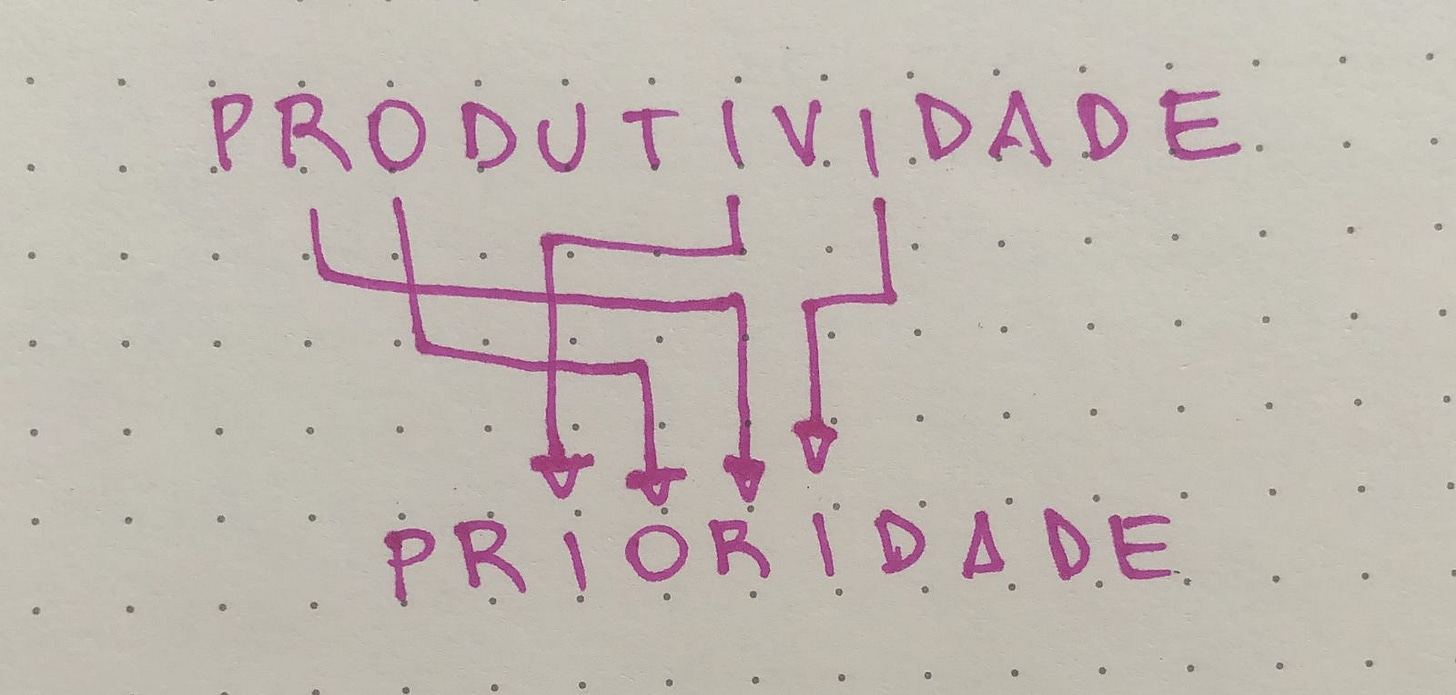 PRODUTIVIDADE
PRIORIDADE